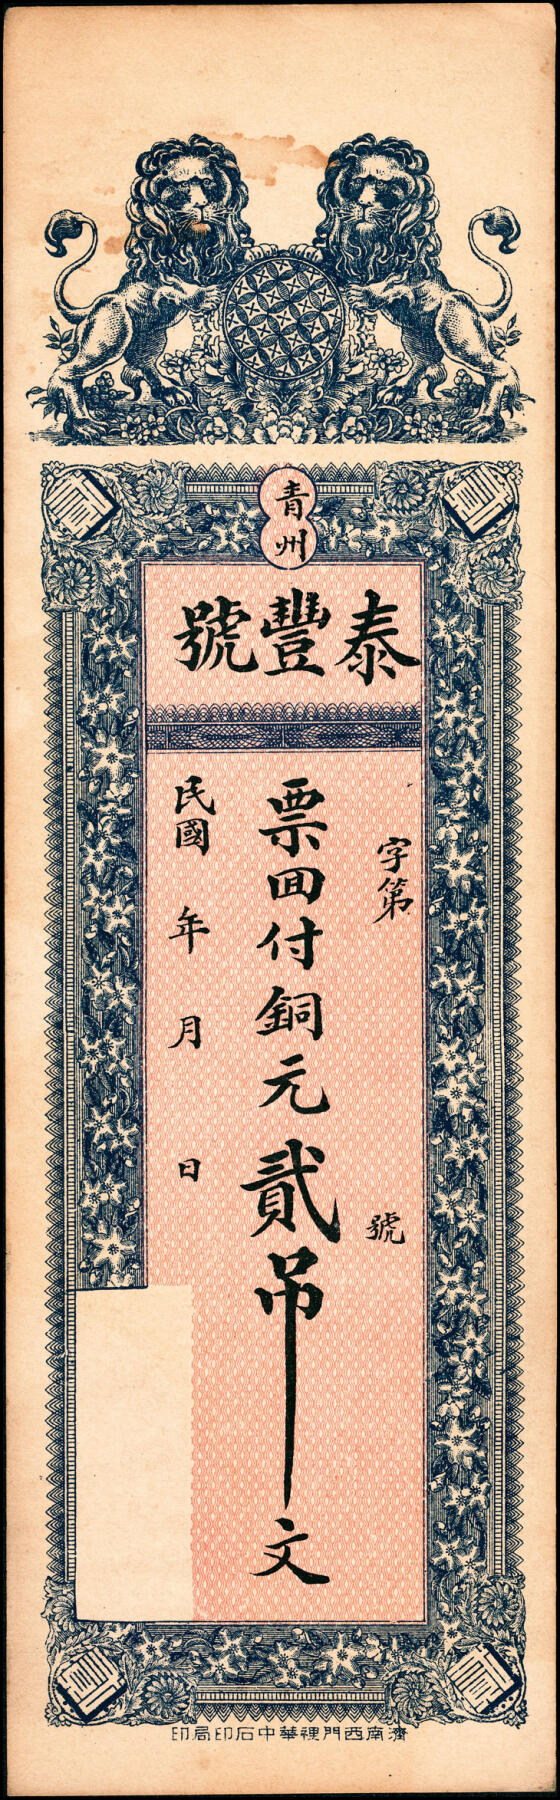 青州
泰豐號
字第 號
票回付銅元貳吊文
民國 年 月 日
濟南西門裡華中石印局印